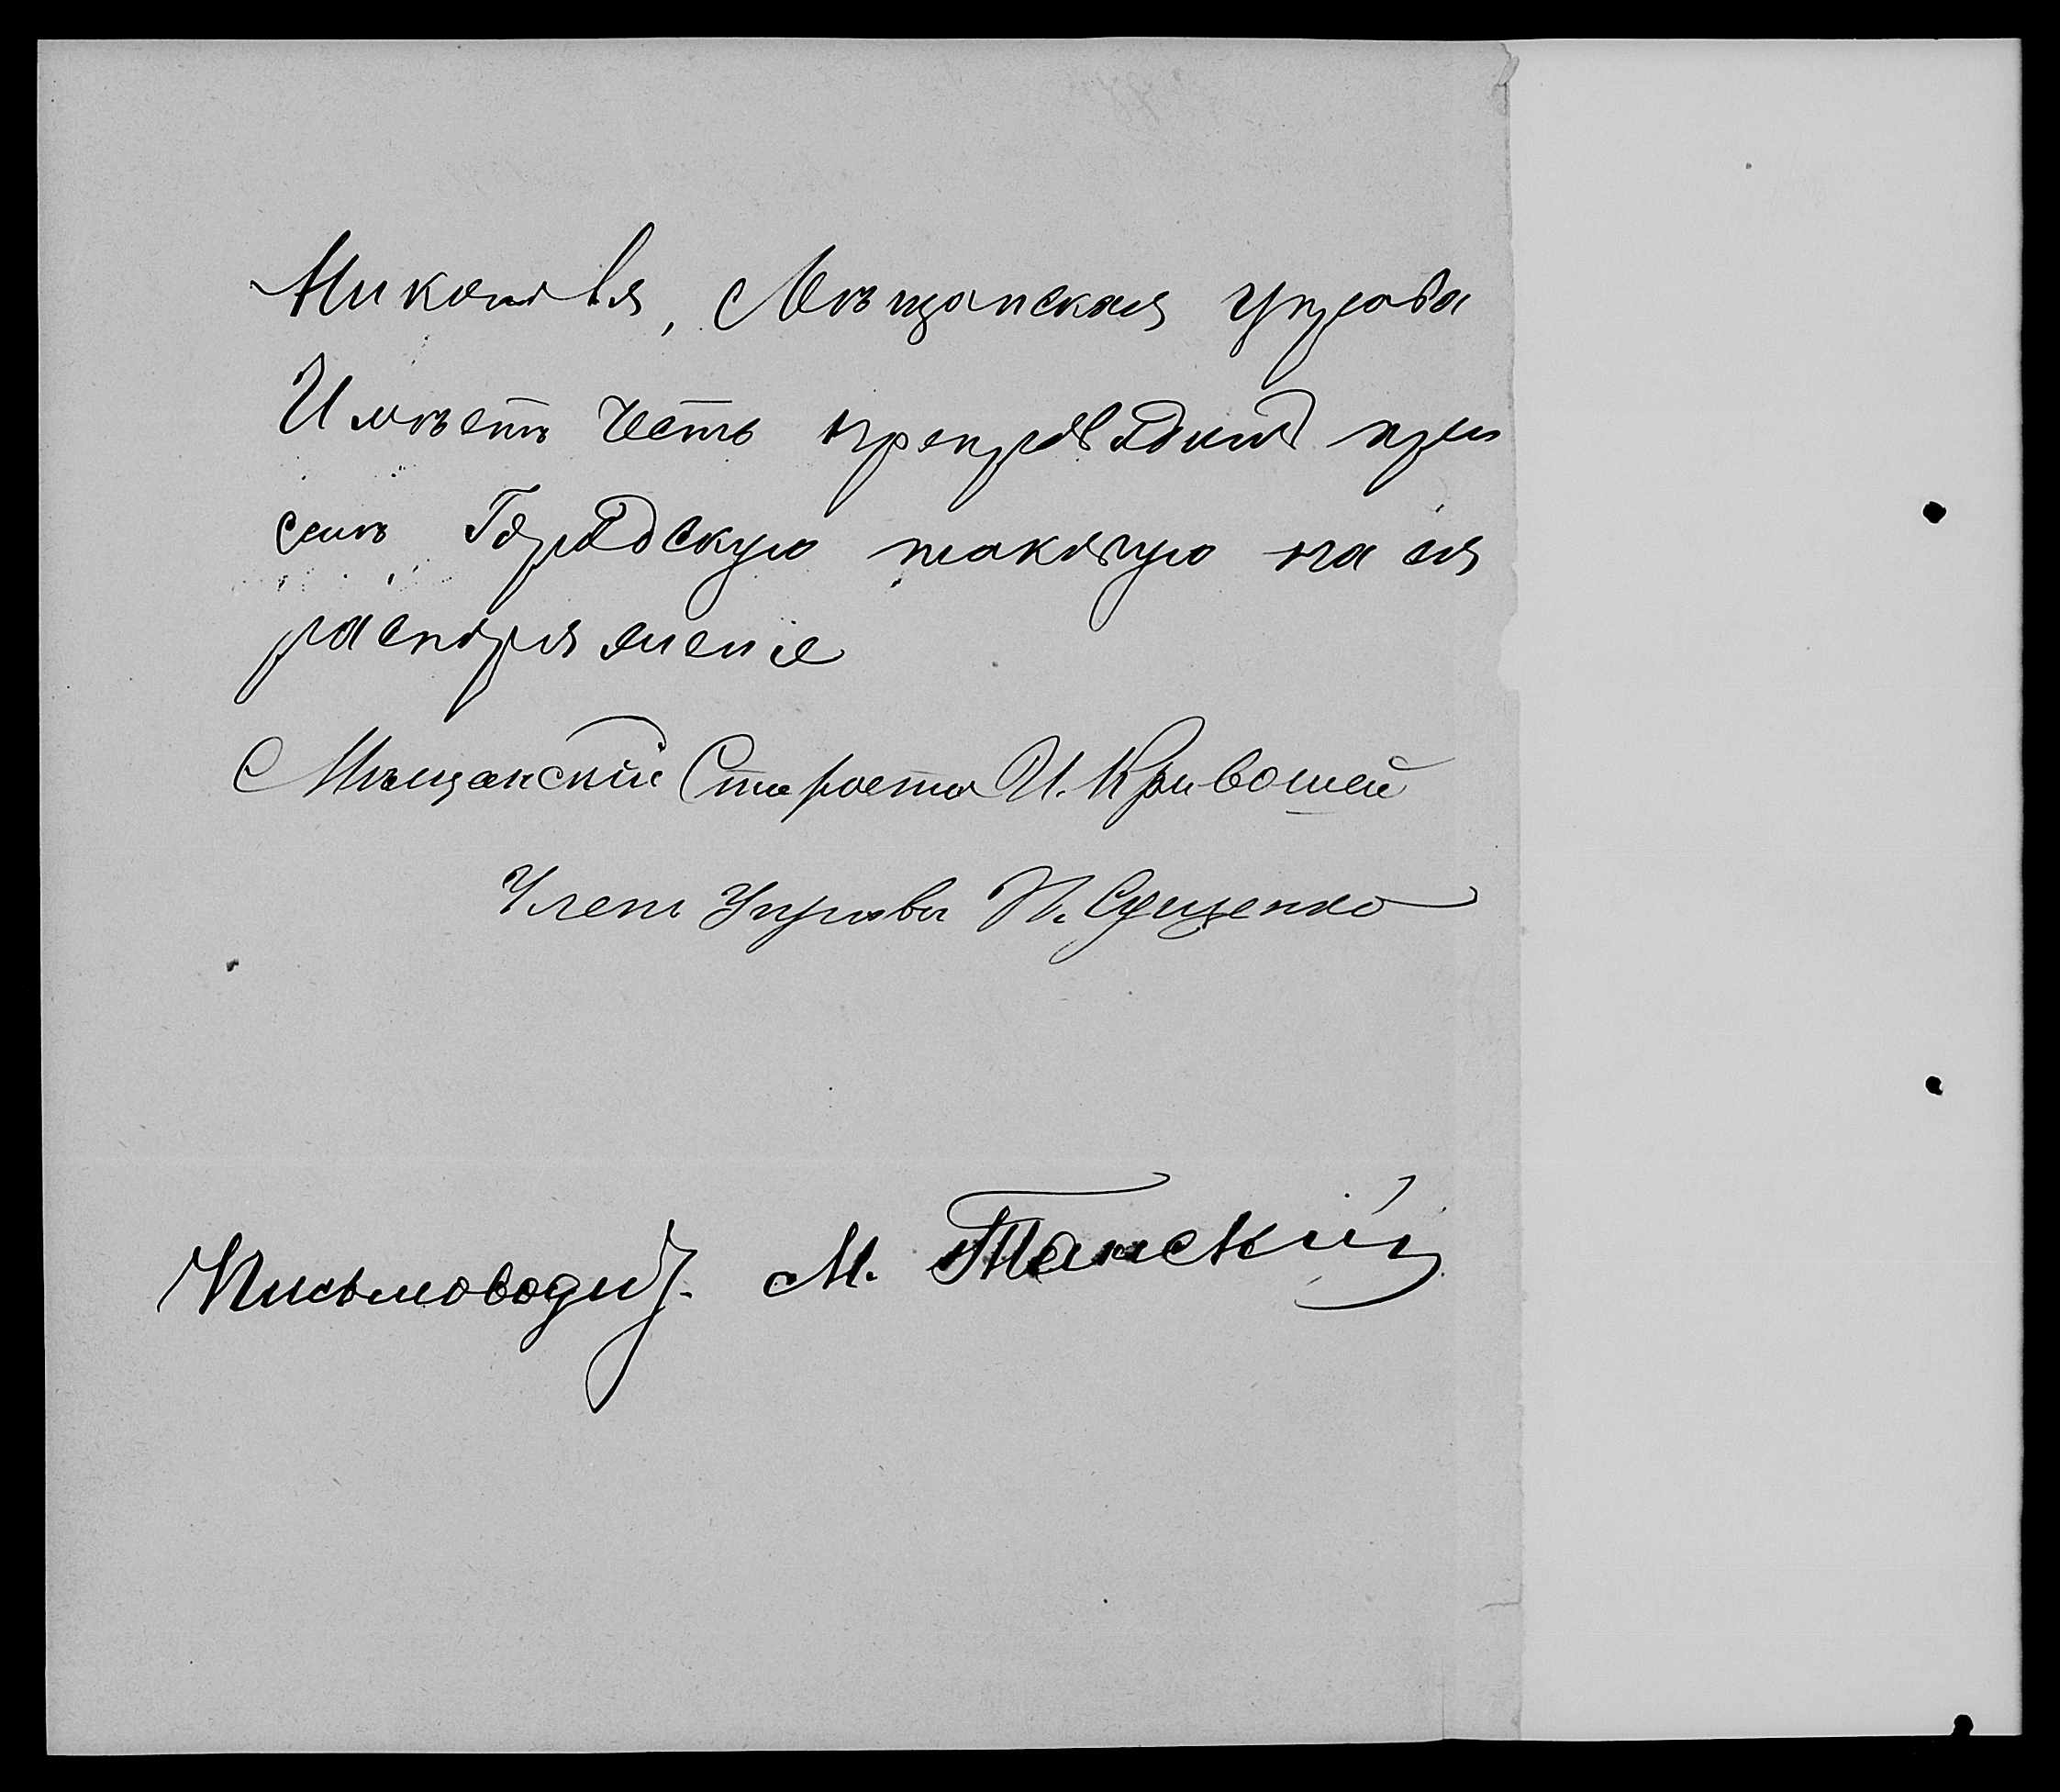 Миколаева, Мѣщанская управа
Имѣетъ Честь препроводить при
семъ Городскую таковую на ея
распоряжение
Мѣщанский Староста И. Кривошей
Членъ Управы П. Сущенко
Письмоводит. М. Танский